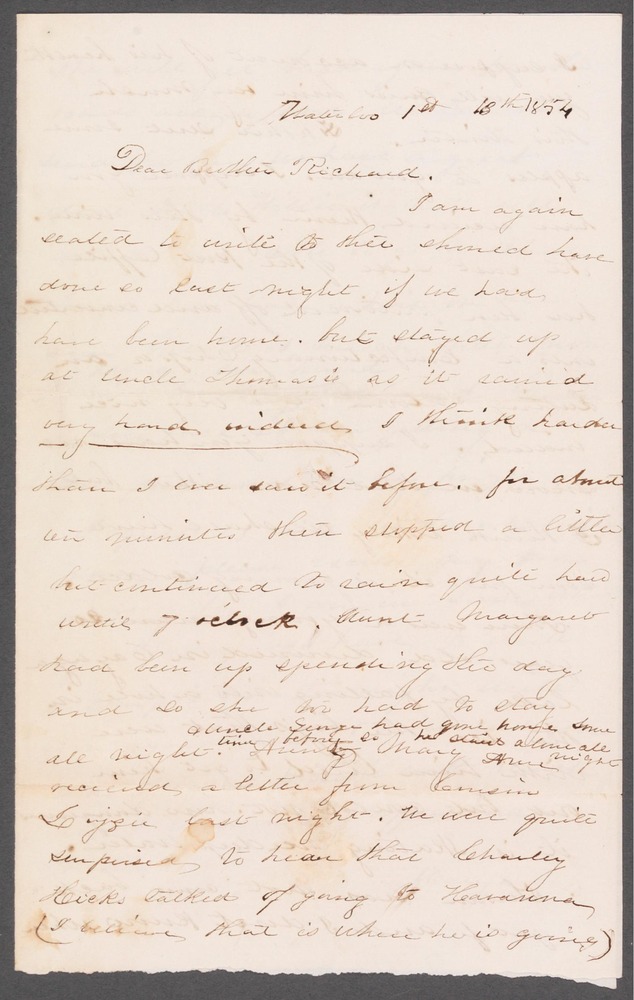 Waterloo 1st 18th 1854
Dear Brother Richard.
I am again
seated to write to thee should have
done so last night if we had
have been home. but stayed up
at uncle Thomas's as it rained
very hard indeed I think harder
than I ever saw it before. for about
ten minutes then stopped a little
but continued to rain quite hard
until 7 o'clock. Aunt Margaret
had been up spending the day
and so she too had to stay
uncle George had gone home some
time before so he staid alone all night
all night. Aunty Mary Ann
recieved a letter from cousin
Lizzie last night. We were quite
surprised to hear that Charley
Hicks talked of going to Havanna
(I believe that is where he is going)